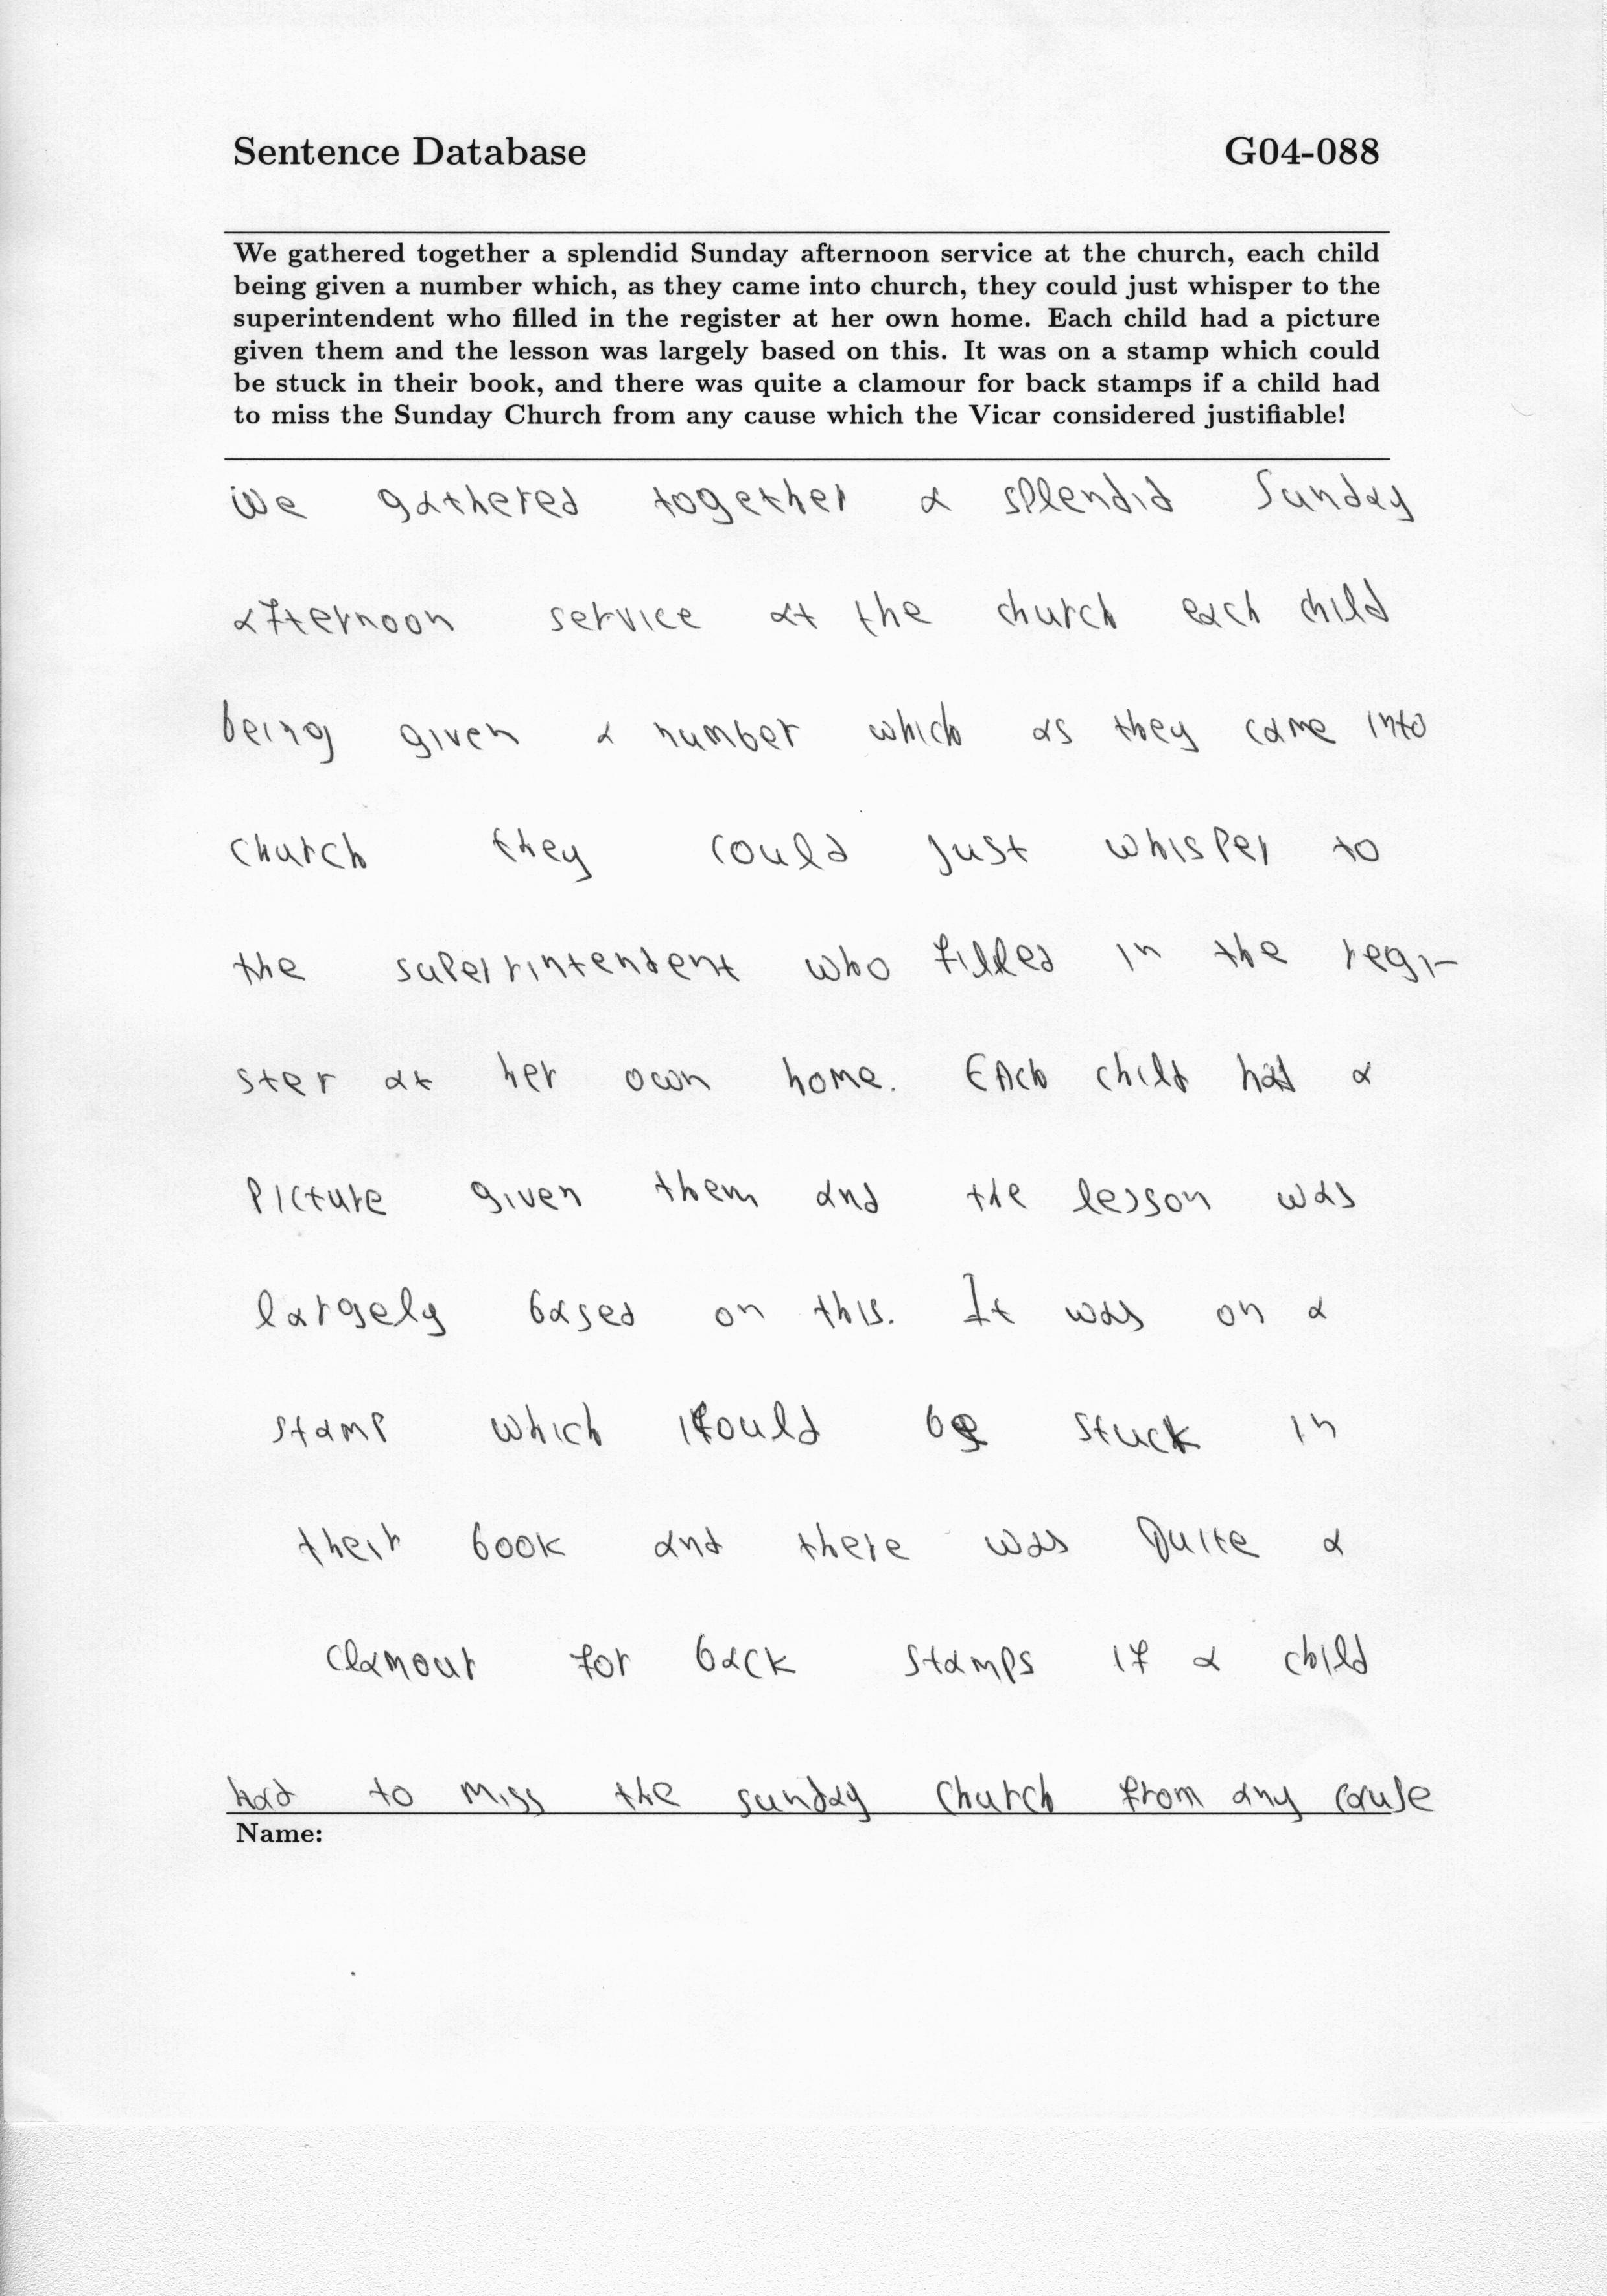 Sentence Database G04-088
We gathered together a splendid Sunday afternoon service at the church, each child
being given a number which, as they came into church, they could just whisper to the
superintendent who filled in the register at her own home. Each child had a picture
given them and the lesson was largely based on this. It was on a stamp which could
be stuck in their book, and there was quite a clamour for back stamps if a child had
to miss the Sunday Church from any cause which the Vicar considered justifiable!
We gathered together a splendid Sunday
afternoon service at the church each child
being given a number which as they came into
church they could just whisper to
the superrintendent who filled in the regi-
ster at her own home. Each child had a
Picture given them and the lesson was
largely based on this. It was on a
stamp which could be stuck in
their book and there was Quite a
clamour for back stamps if a child
had to miss the sunday church from any cause
Name: